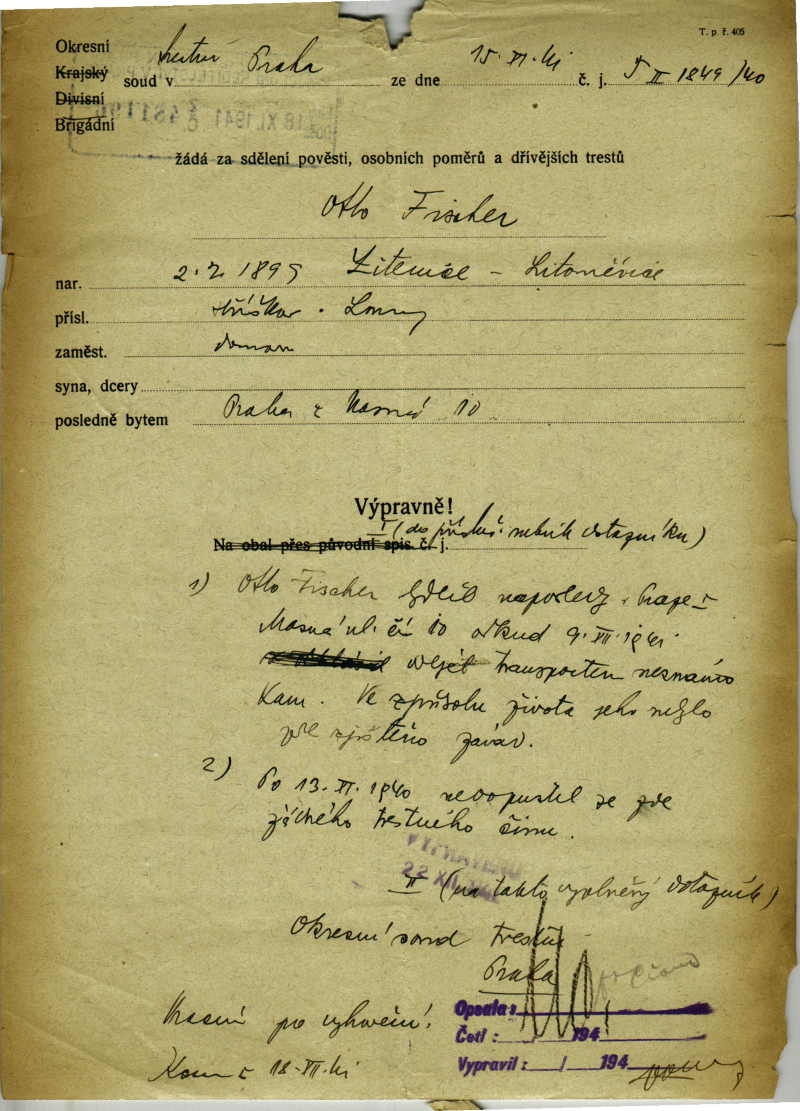 T. p. ř. 405
Okresní
Krajský soud v trestní Praha ze dne 15. XI. 41 č. j. T II 1849/40
Divisní
Brigádní
18 XI. 1941
žádá za sdělení pověsti, osobních poměrů a dřívějších trestů
Otto Fischer
nar. 2. 2. 1899 Žitenice - Litoměřice
přísl. Louny
zaměst.
syna, dcery
posledně bytem Praha I Masná 10
Výpravně!
I (do přísluš. rubrik dotazníku)
Na obal přes původní spis. č. j.
1) Otto Fischer bydlel naposledy v Praze I
Masná ul. čís 10 odkud 9. XII. 1941
odejel transportem neznámo
kam. Ve způsobu života jeho nebylo
zde zjištěno závad.
2) Po 13. XI. 1940 nedopustil se zde
žádného trestného činu.
VYPRAVENO
22 XII. 1941
II (na takto vyplněný dotazník)
Okresní soud trestní
Praha
Opsala:
po vyřízení!
Četl: / 194
18. XII. 41
Vypravil: / 194